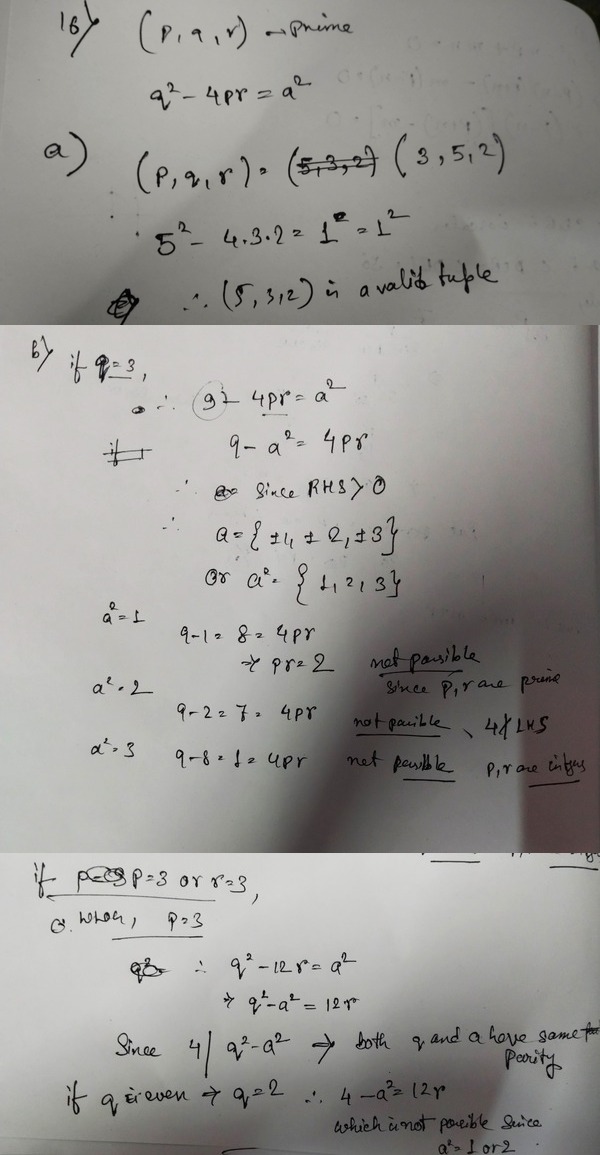 16) (p, q, r) → prime
q² - 4pr = a²
a) (p, q, r) = (5, 3, 2) (3, 5, 2)
∴ 5² - 4.3.2 = 1² = 1²
∴ (5, 3, 2) is a valid tuple
b) if q = 3,
∴ 9 - 4pr = a²
if 9 - a² = 4pr
∵ Since RHS > 0
∴ a = { ±1, ±2, ±3}
Or a² = { 1, 2, 3}
a² = 1
9-1 = 8 = 4pr
→ pr = 2 not possible
since p, r are prime
a² = 2
9-2 = 7 = 4pr not possible, 4∤LHS
a² = 3 9-8 = 1 = 4pr not possible p, r are integers
if p=3 or r=3,
when, p=3
∴ q² - 12r = a²
→ q² - a² = 12r
Since 4 | q² - a² → both q and a have same
parity
if q is even → q = 2 ∴ 4 - a² = 12r
which is not possible since
a² = 1 or 2